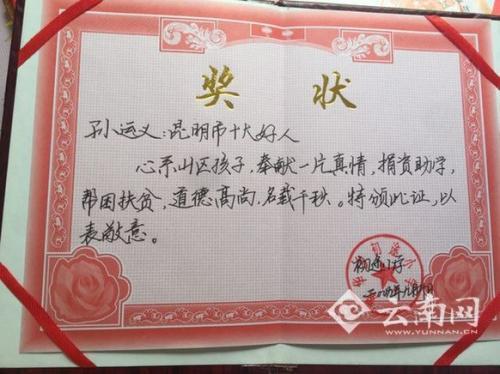 奖 状
孙运义：昆明市十大好人
心系山区孩子，奉献一片真情，捐资助学，
帮困扶贫，道德高尚，名载千秋。特颁此证，以
表敬意。
云南网
WWW.YUNNAN.CN